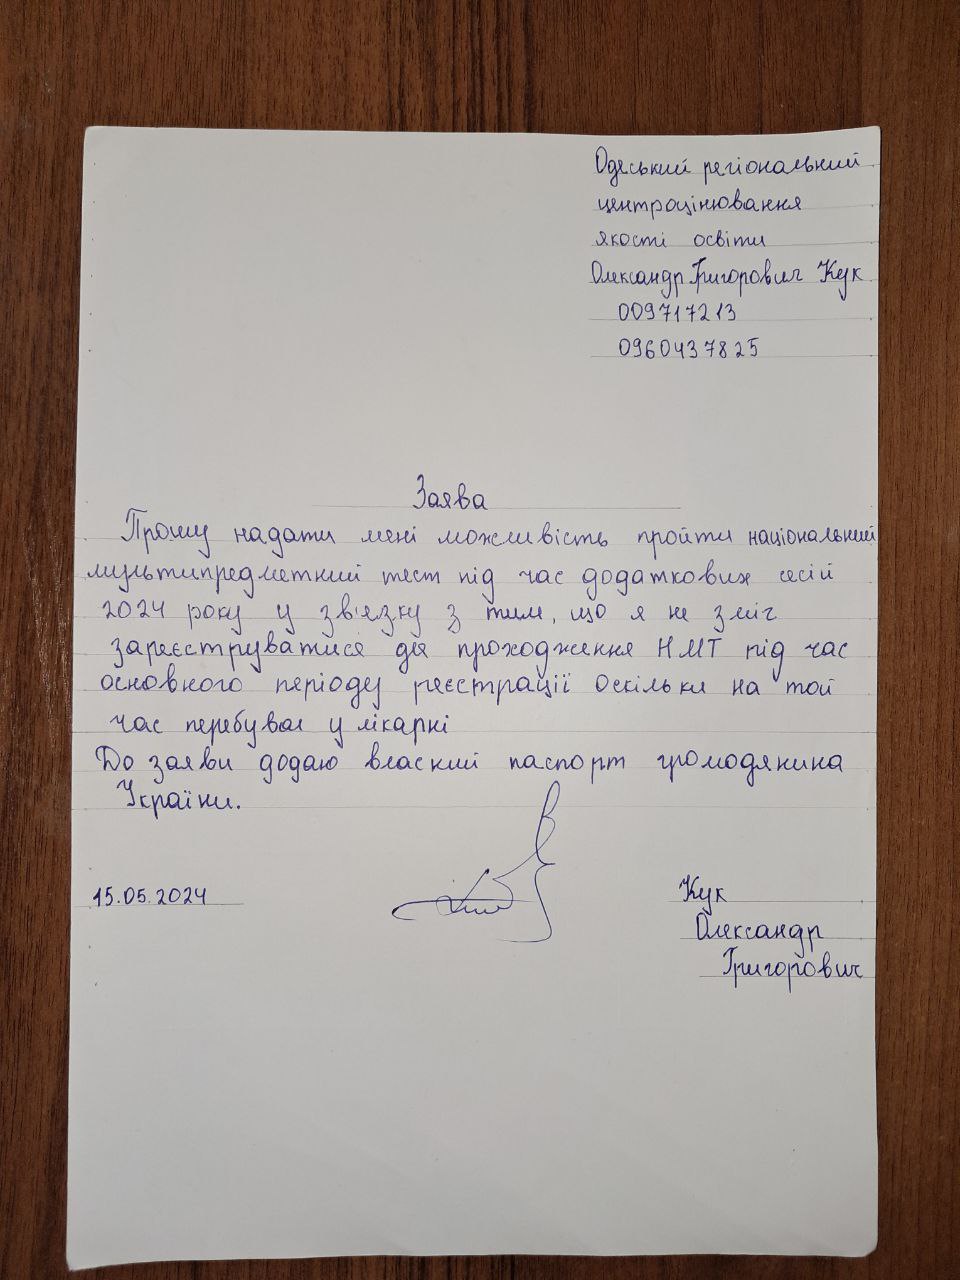 Одеський регіональний
центроцінювання
якості освіти
Олександр Григорович Кук
009717213
0960437825
Заява
Прошу надати мені можливість пройти національний
мультипредметний тест під час додаткових сесій
2024 року у зв'язку з тим, що я не зміг
зареєструватися для проходження НМТ під час
основного періоду реєстрації оскільки на той
час перебував у лікарні
До заяви додаю власний паспорт громодянина
України.
15.05.2024
Кук
Олександр
Григорович